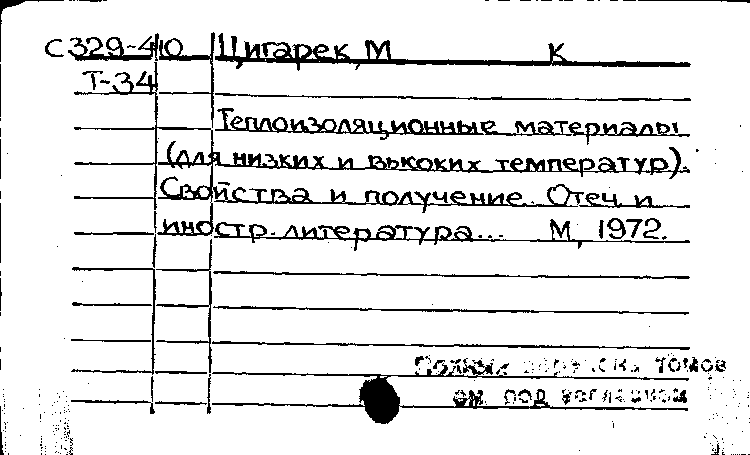 С329-410 Цигарек, М К
Т-34
Теплоизоляционные материалы
(для низких и вькоких температур).
Свойства и получение. Отеч. и
иностр. литература... М, 1972.
томов
см. под заглавием